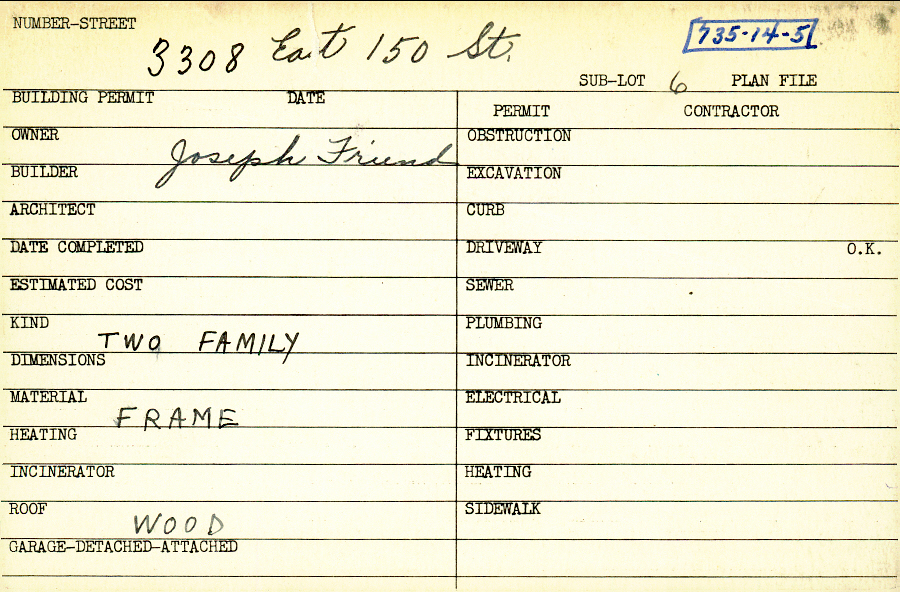 NUMBER-STREET
3308 East 150 St.
735-14-5
SUB-LOT 6 PLAN FILE
BUILDING PERMIT DATE
PERMIT CONTRACTOR
OWNER Joseph Friend
OBSTRUCTION
BUILDER
EXCAVATION
ARCHITECT
CURB
DATE COMPLETED
DRIVEWAY O.K.
ESTIMATED COST
SEWER
KIND TWO FAMILY
PLUMBING
DIMENSIONS
INCINERATOR
MATERIAL FRAME
ELECTRICAL
HEATING
FIXTURES
INCINERATOR
HEATING
ROOF WOOD
SIDEWALK
GARAGE-DETACHED-ATTACHED